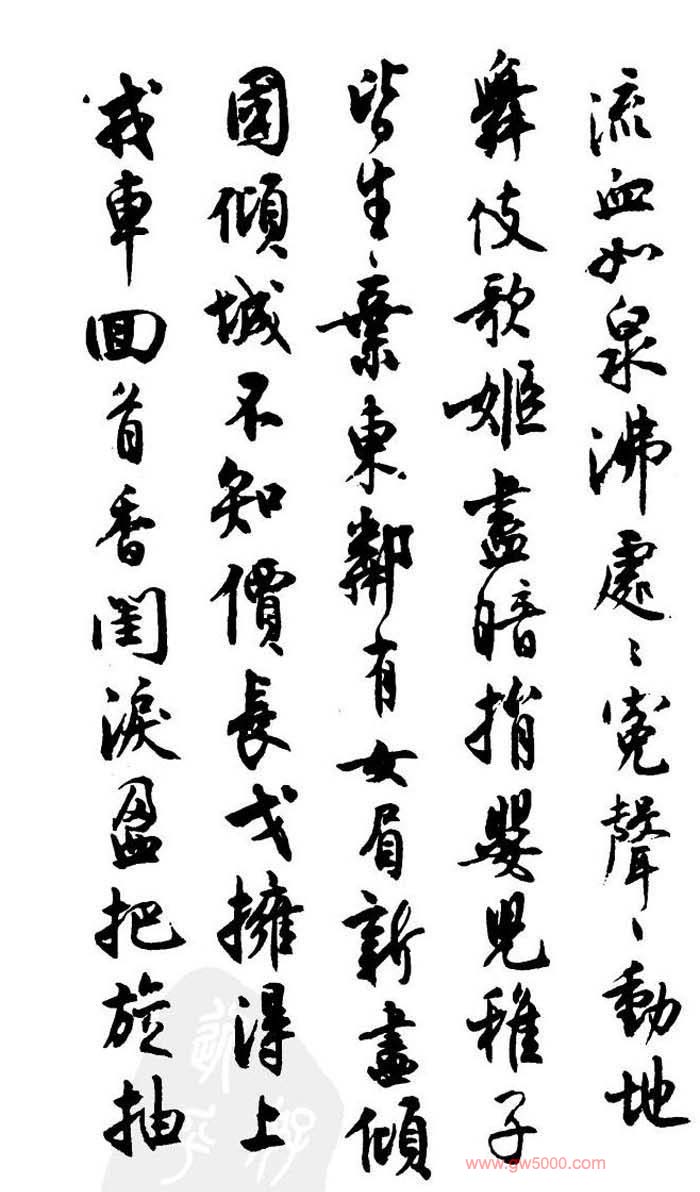 流血如泉沸處〻冤聲〻動地
舞伎歌姬盡暗捐嬰兒稚子
皆生〻棄東鄰有女眉新畫傾
國傾城不知價長戈擁得上
戎車回首香閨淚盈把旋抽
www.gw5000.com